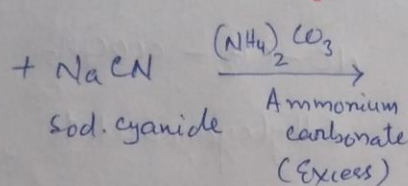 + NaCN (NH4)2 CO3
Sod. cyanide Ammonium
carbonate
(Excess)